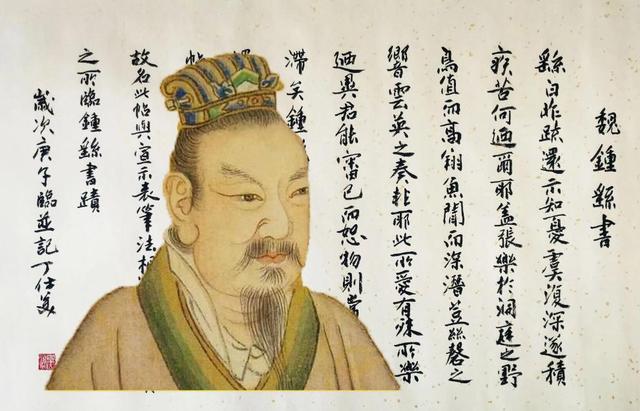 魏鍾繇書
繇白昨疏還示知憂虞復深遂積
疾苦何迺爾耶蓋張樂於洞庭之野
鳥值而高翔魚聞而深潛豈絲磬之
響雲英之奏非耶此所愛有殊所樂
迺異君能審己而恕物則常
滯矣鍾
帖
故名此帖與宣示表筆法相
之所臨鍾繇書蹟
歲次庚子臨並記丁仕美